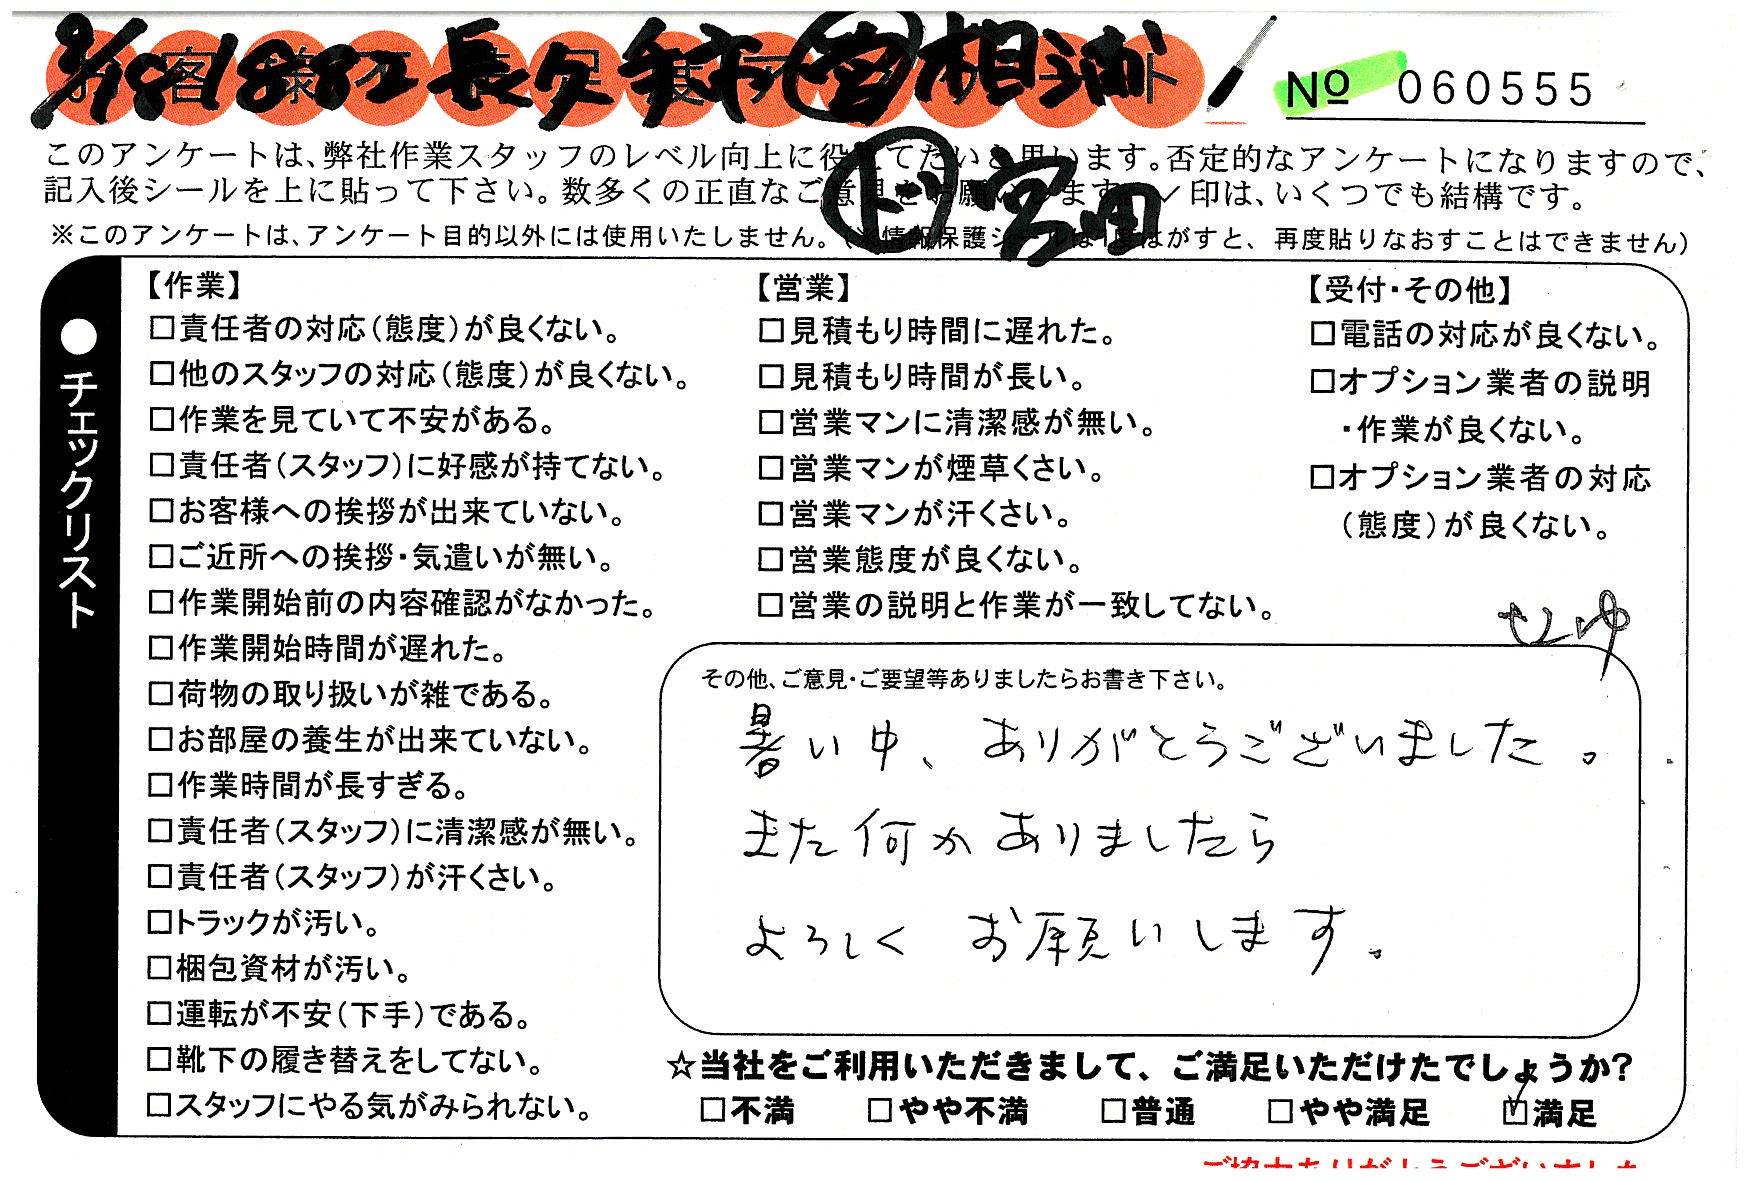 9/18 1882 長久手市 営 相浦
お客様不満足度アンケート
No 060555
このアンケートは、弊社作業スタッフのレベル向上に役立てたいと思います。否定的なアンケートになりますので、
記入後シールを上に貼って下さい。数多くの正直なご意見をお願いします。✓印は、いくつでも結構です。
ド 宮田
※このアンケートは、アンケート目的以外には使用いたしません。(※情報保護シールは1度はがすと、再度貼りなおすことはできません)
●チェックリスト
【作業】
□責任者の対応(態度)が良くない。
□他のスタッフの対応(態度)が良くない。
□作業を見ていて不安がある。
□責任者(スタッフ)に好感が持てない。
□お客様への挨拶が出来ていない。
□ご近所への挨拶・気遣いが無い。
□作業開始前の内容確認がなかった。
□作業開始時間が遅れた。
□荷物の取り扱いが雑である。
□お部屋の養生が出来ていない。
□作業時間が長すぎる。
□責任者(スタッフ)に清潔感が無い。
□責任者(スタッフ)が汗くさい。
□トラックが汚い。
□梱包資材が汚い。
□運転が不安(下手)である。
□靴下の履き替えをしてない。
□スタッフにやる気がみられない。
【営業】
□見積もり時間に遅れた。
□見積もり時間が長い。
□営業マンに清潔感が無い。
□営業マンが煙草くさい。
□営業マンが汗くさい。
□営業態度が良くない。
□営業の説明と作業が一致してない。
【受付・その他】
□電話の対応が良くない。
□オプション業者の説明
・作業が良くない。
□オプション業者の対応
(態度)が良くない。
その他、ご意見・ご要望等ありましたらお書き下さい。
暑い中、ありがとうございました。
また何かありましたら
よろしく お願いします。
☆当社をご利用いただきまして、ご満足いただけたでしょうか?
□不満 □やや不満 □普通 □やや満足 ☑満足
ご協力ありがとうございました